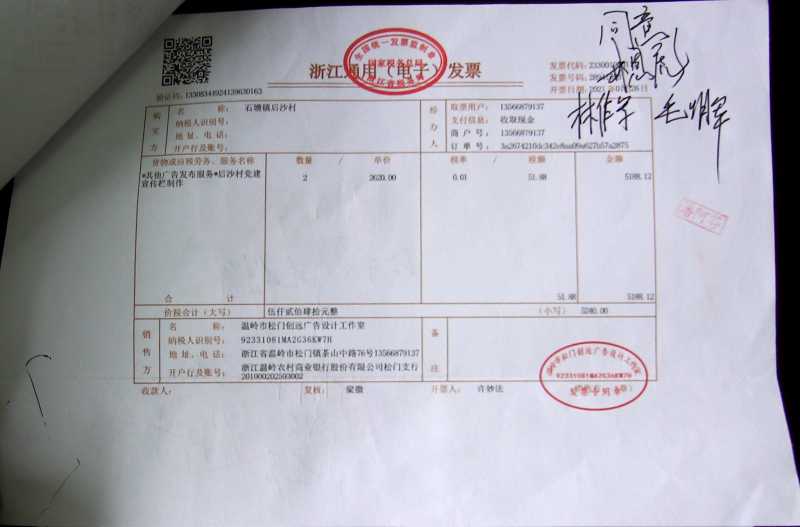 浙江通用（电子）发票
全国统一发票监制章
国家税务总局
浙江省税务局
验证码: 13308344924139630163
发票代码:
发票号码:
开票日期:
同意
林作字 毛明军
购买方
名 称: 石塘镇后沙村
纳税人识别号:
地 址、电 话:
开户行及账号:
经方人
取票用户: 13566879137
支付信息: 收取现金
商 户 号: 13566879137
订 单 号: 3a2674210dc342e8aa09a627b57a2875
货物或应税劳务、服务名称 数量 / 单价 税率 / 税额 金额
*其他广告发布服务*后沙村党建 2 2620.00 0.01 51.88 5188.12
宣传栏制作
合 计 51.88 5188.12
价税合计（大写） 伍仟贰佰肆拾元整 （小写） 5240.00
销售方
名 称: 温岭市松门创远广告设计工作室
纳税人识别号: 92331081MA2G36KW7H
地 址、电话: 浙江省温岭市松门镇茶山中路76号13566879137
开户行及账号: 浙江温岭农村商业银行股份有限公司松门支行
201000202593002
备注
温岭市松门创远广告设计工作室
92331081MA2G36KW7H
发票专用章
收款人: 复核: 梁微 开票人: 许妙法